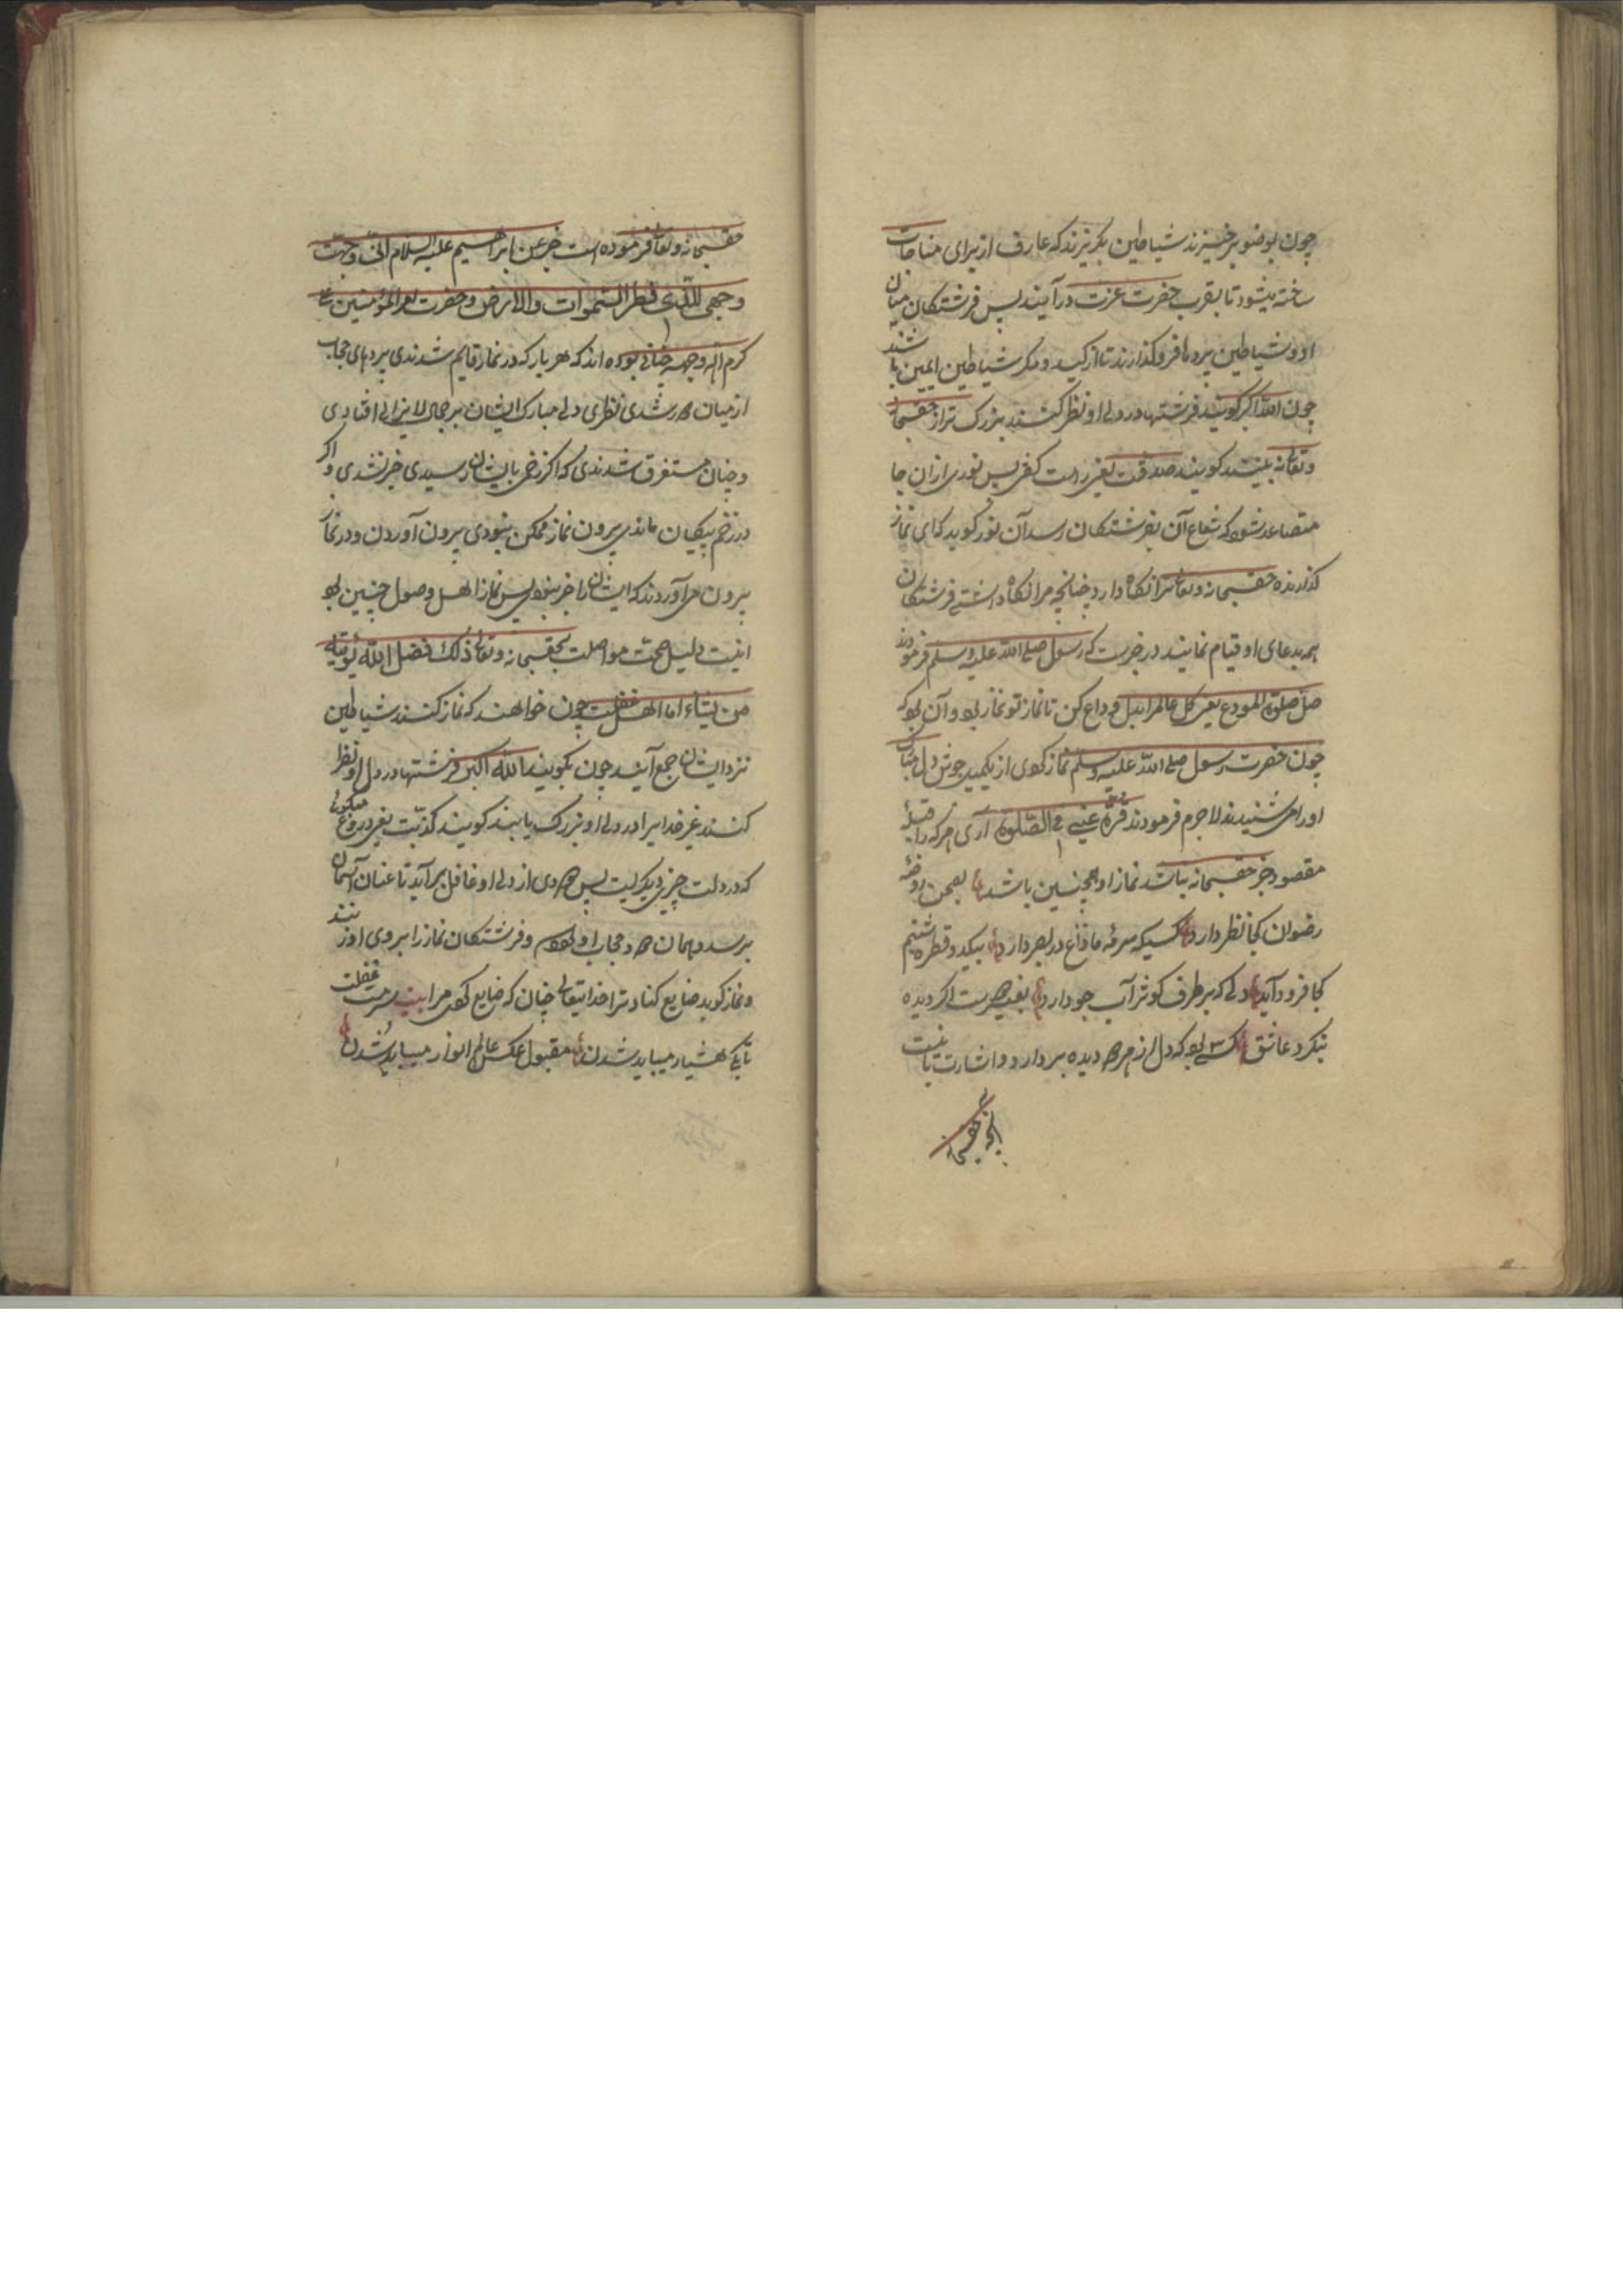 چون بوضو برخیزند شیاطین بگریزند که عارف از برای مناجات
ساخته میشود تا بقرب حضرت عزت درآیند پس فرشتگان میان
او و شیاطین پردها فروگذارند تا از کید و مکر شیاطین ایمن باشند
چون الله اکبر گویند فرشتها در دل او نظر کنند بزرگ تر از حقسبحانه
وتعالی نه بینند گویند صدقت یعنی راست گفتی پس نوری از ان جا
متصاعد شود که شعاع آن بفرشتگان رسد آن نور گوید که ای نماز
گذارنده حقسبحانه وتعالی ترا نگاه دارد چنانچه مرا نگاه داشتی فرشتگان
بدعای او قیام نمایند در خبرست که رسول صلی الله علیه وسلم فرمودند
صل صلوة المودع یعنی کل عالم را بدل وداع کن تا نماز تو نماز بود و آن بود که
چون حضرت رسول صلی الله علیه وسلم نماز کردی از یکمیل جوش دل مبارک
او را می شنیدند لاجرم فرمودند قرة عینی فی الصلوة آری هر که را قبلهٔ
مقصود جز حقسبحانه نباشد نماز او همچنین باشد بچمن روضهٔ
رضوان کجا نظر دارد کسیکه سرمه ما زاغ در بصر دارد بیکدو قطره شبنم
کجا فرود آید دلی که بر طرف کوثر آب جو دارد بغیر دوست اگر دیده
بنگرد عاشق کسی بود که دل از هر دو دیده بردارد و اشارت باینست
آنچه حقسبحانه
حقسبحانه وتعالی فرموده است خبر عن ابراهیم علیه السلام انی وجهت
وجهی للذی فطر السموات والارض و حضرت امیر المؤمنین علی
کرم الله وجهه چنان بوده اند که هر بار که در نماز قایم شدندی پردهای حجاب
از میان دور شدی نظری دل مبارک ایشان بر جمال لایزالی افتادی
و چنان مستغرق شدندی که اگر زخمی بایشان رسیدی خبر نشدی و اگر
در زخم پیکان ماندی بیرون نماز ممکن نبودی بیرون آوردن و در نماز
بیرون می آوردند که ایشان را خبر نبود پس نماز اهل وصول چنین بود
اینست دلیل صحت مواصلت بحقسبحانه وتعالی ذلک فضل الله یؤتیه
من یشاء اما اهل غفلت چون خواهند که نماز کنند شیاطین
نزد ایشان جمع آیند چون بگویند الله اکبر فرشتها در دل او نظر
کنند غیر خدایرا در دل او بزرگ یابند گویند کذبت یعنی دروغ میگوئی
که در دلت چیزی دیگریست پس دودی از دل او غافل برآید تا عنان آسمان
برسد و همان دود حجاب او شود و فرشتگان نماز را بروی او زنند
و نماز گوید ضایع کناد ترا خدایتعالی چنان که ضایع کردی مرا بیت سرمست غفلت
تا کی هشیار میباید شدن مقبول عکس عالم انوار میباید شدن